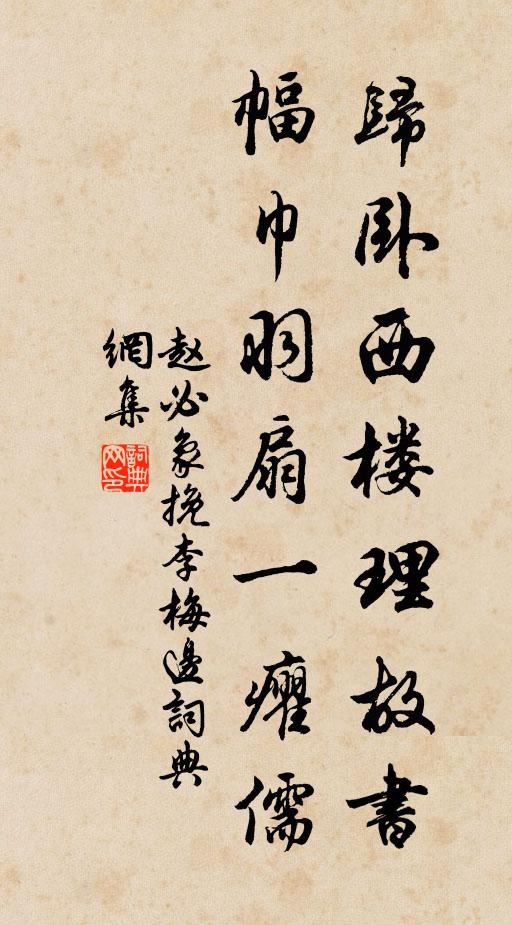 歸卧西楼理故書
幅巾羽扇一癯儒
赵必象挽李梅邊詞典
網集
詞典網印